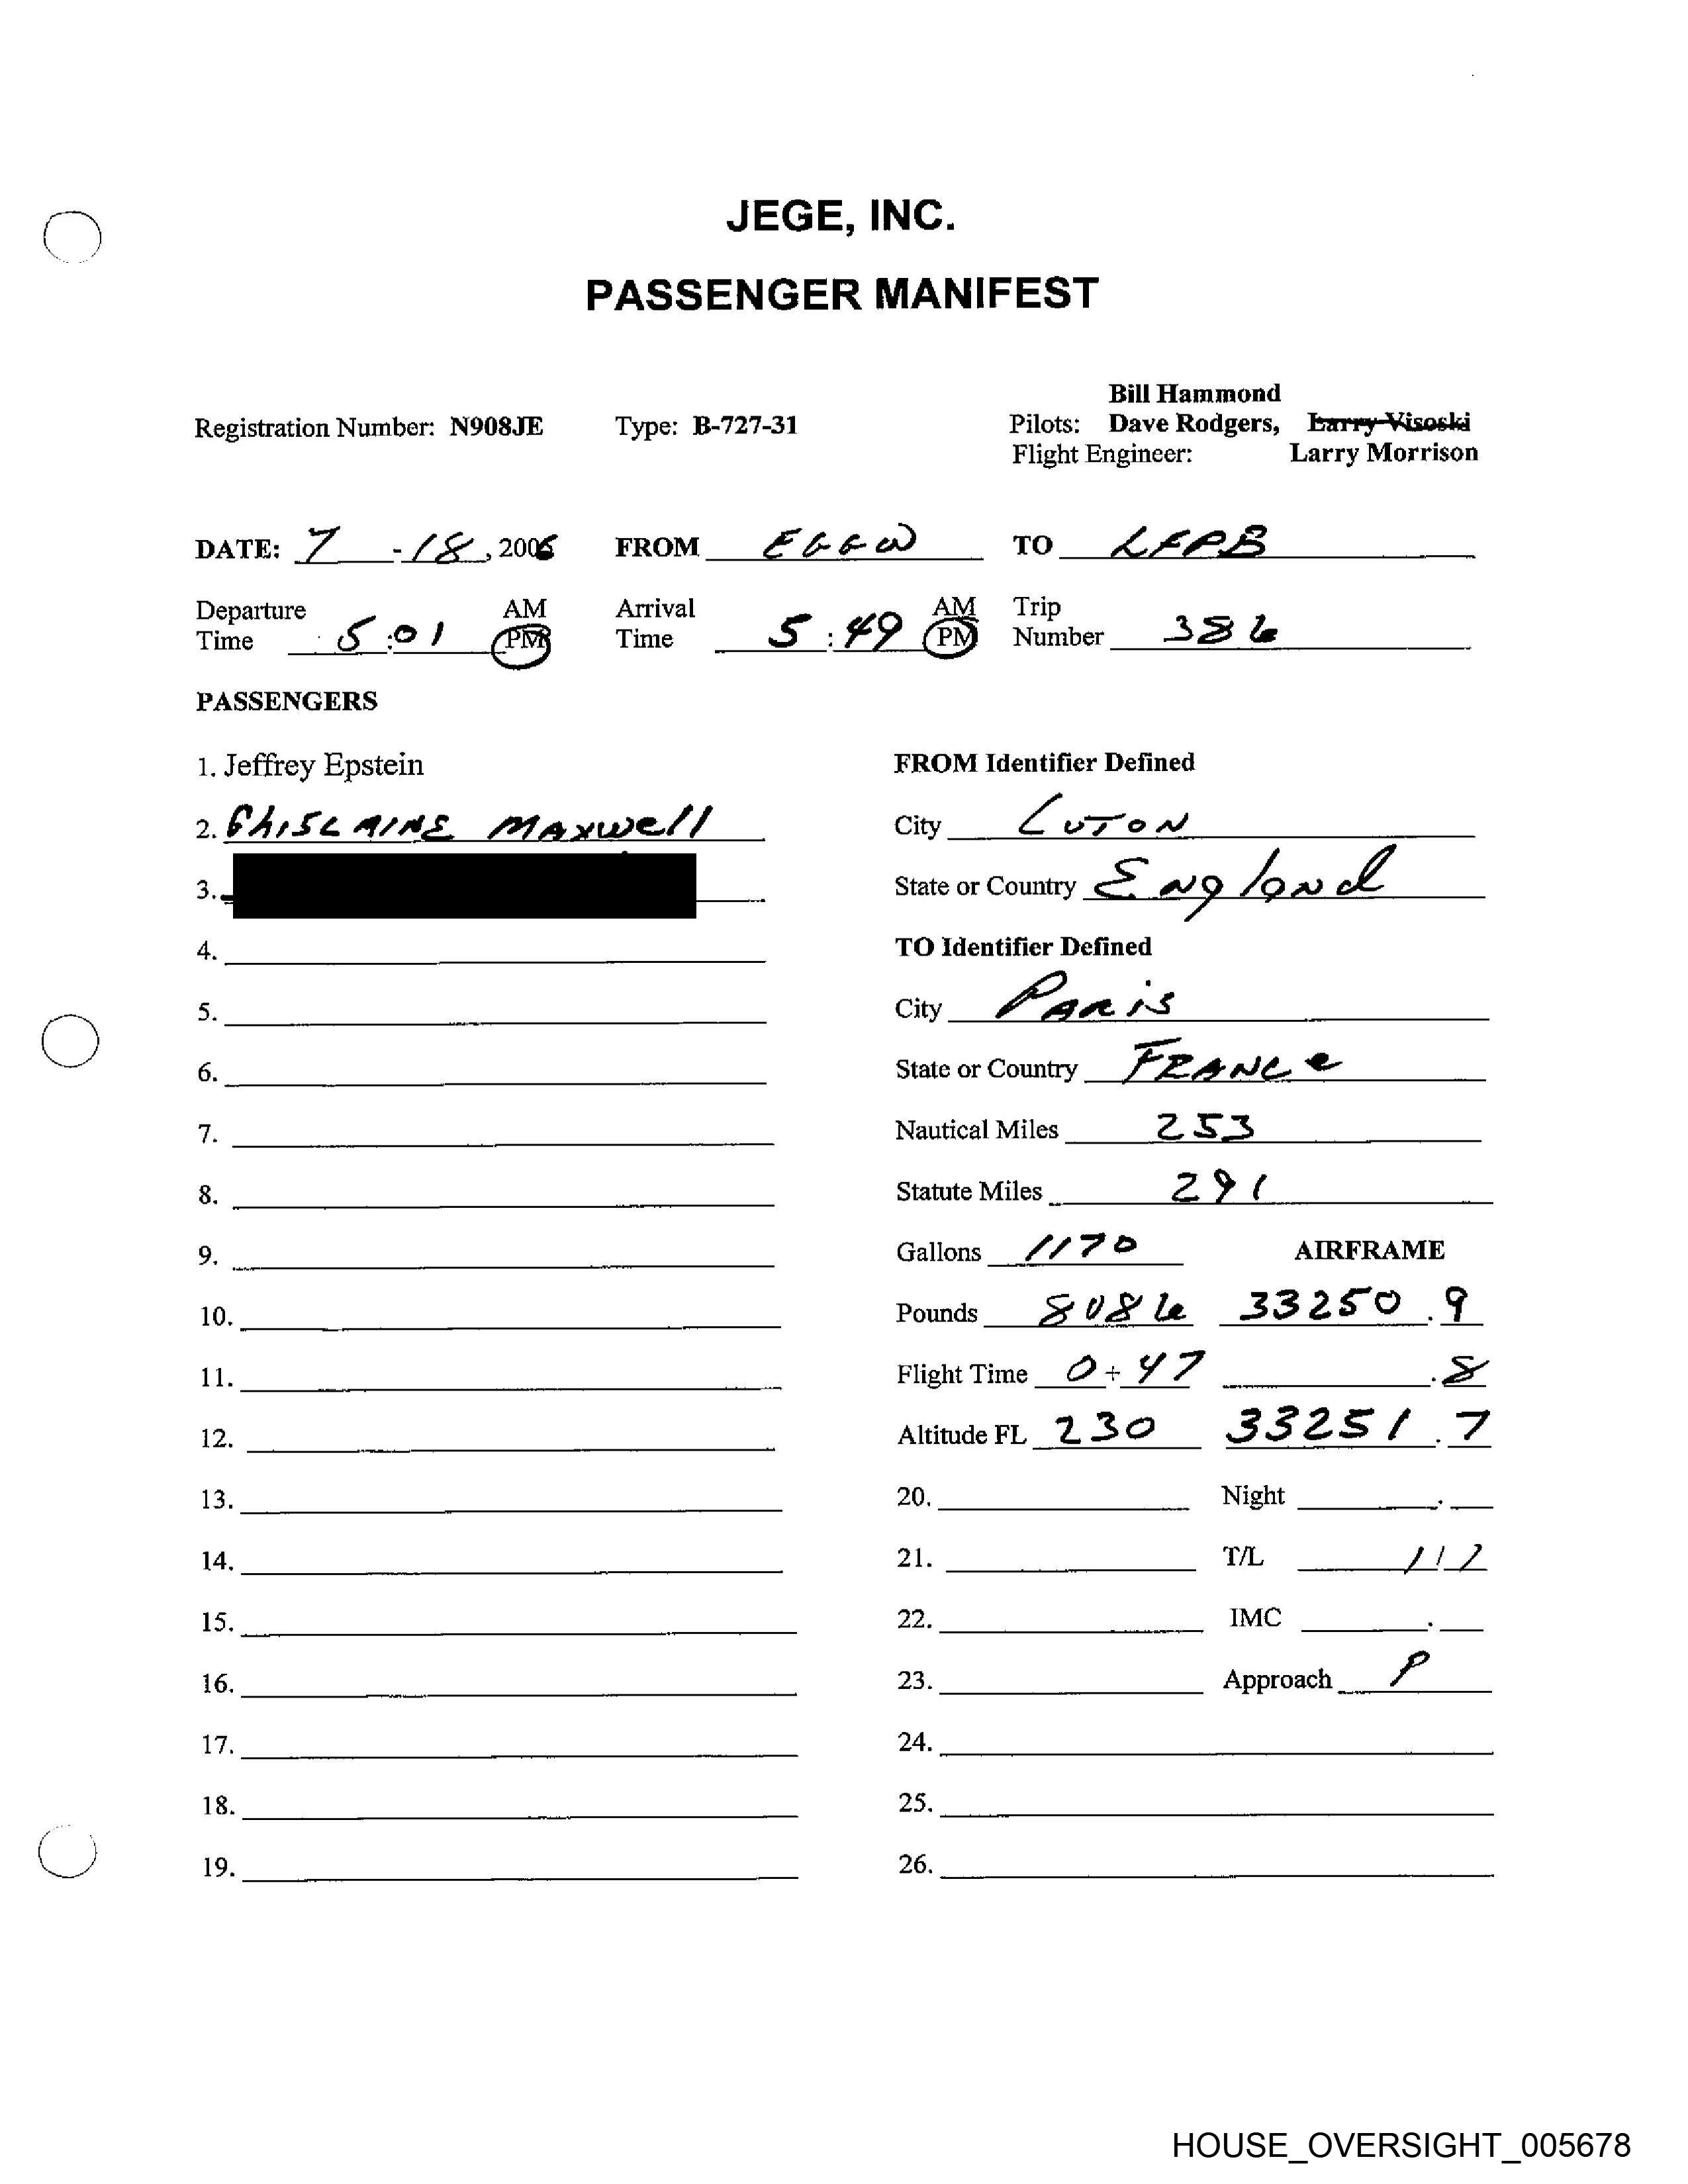 JEGE, INC.
PASSENGER MANIFEST
Bill Hammond
Registration Number: N908JE Type: B-727-31 Pilots: Dave Rodgers, Larry Visoski
Flight Engineer: Larry Morrison
DATE: 7 - 18, 2006 FROM EGGW TO LFPB
Departure Time 5:01 AM PM Arrival Time 5:49 AM PM Trip Number 386
PASSENGERS
1. Jeffrey Epstein
2. GhISLAINE MAxwell
3.
4.
5.
6.
7.
8.
9.
10.
11.
12.
13.
14.
15.
16.
17.
18.
19.
FROM Identifier Defined
City LUTON
State or Country England
TO Identifier Defined
City PARiS
State or Country FRANCe
Nautical Miles 253
Statute Miles 291
Gallons 1170 AIRFRAME
Pounds 8086 33250.9
Flight Time 0+47 .8
Altitude FL 230 33251.7
20. Night .
21. T/L 1/1
22. IMC .
23. Approach P
24.
25.
26.
HOUSE_OVERSIGHT_005678